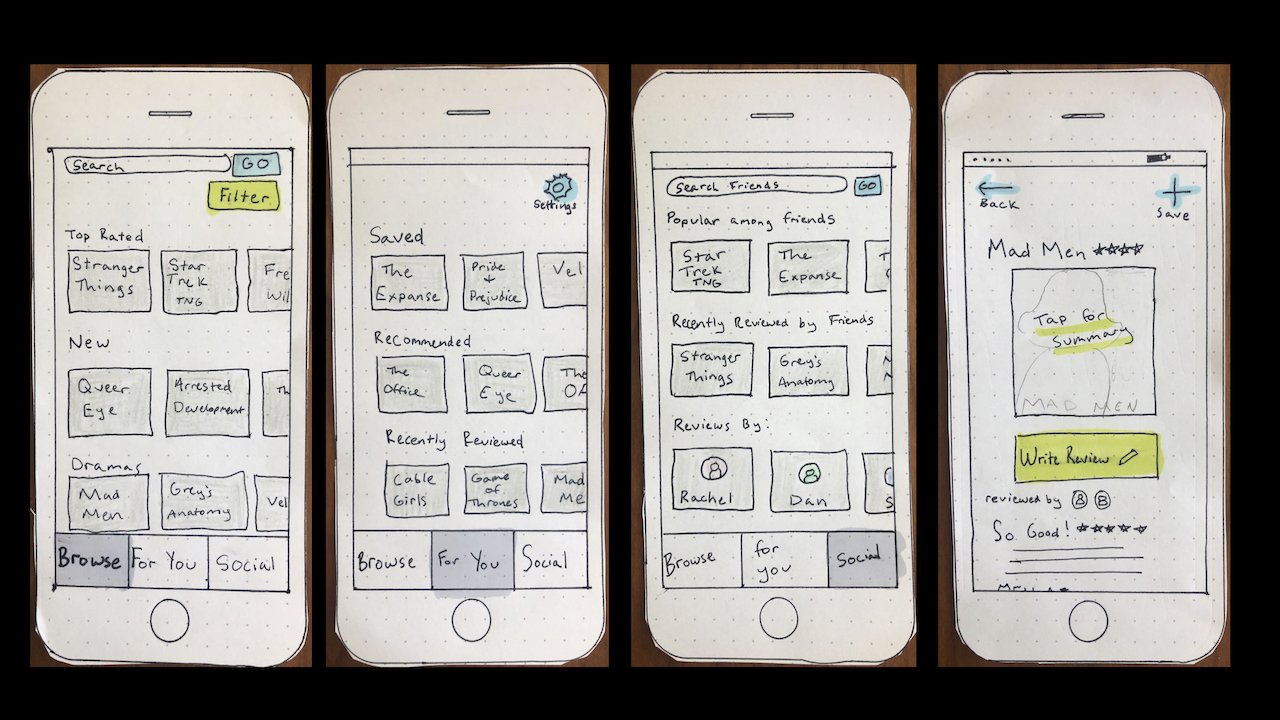 Search GO
Filter
Top Rated
Stranger
Things
Star
Trek
TNG
Fre
Wil
New
Queer
Eye
Arrested
Development
Th
Dramas
Mad
Men
Grey's
Anatomy
Vel
Browse For You Social
Settings
Saved
The
Expanse
Pride
+
Prejudice
Vel
Recommended
The
Office
Queer
Eye
The
OA
Recently Reviewed
Cable
Girls
Game
of
Thrones
Mad
Me
Browse For You Social
Search Friends GO
Popular among friends
Star
Trek
TNG
The
Expanse
Recently Reviewed by Friends
Stranger
Things
Grey's
Anatomy
Reviews By:
Rachel
Dan
S
Browse for
you Social
Back
Save
Mad Men
Tap for
Summary
MAD MEN
Write Review
reviewed by
So Good!